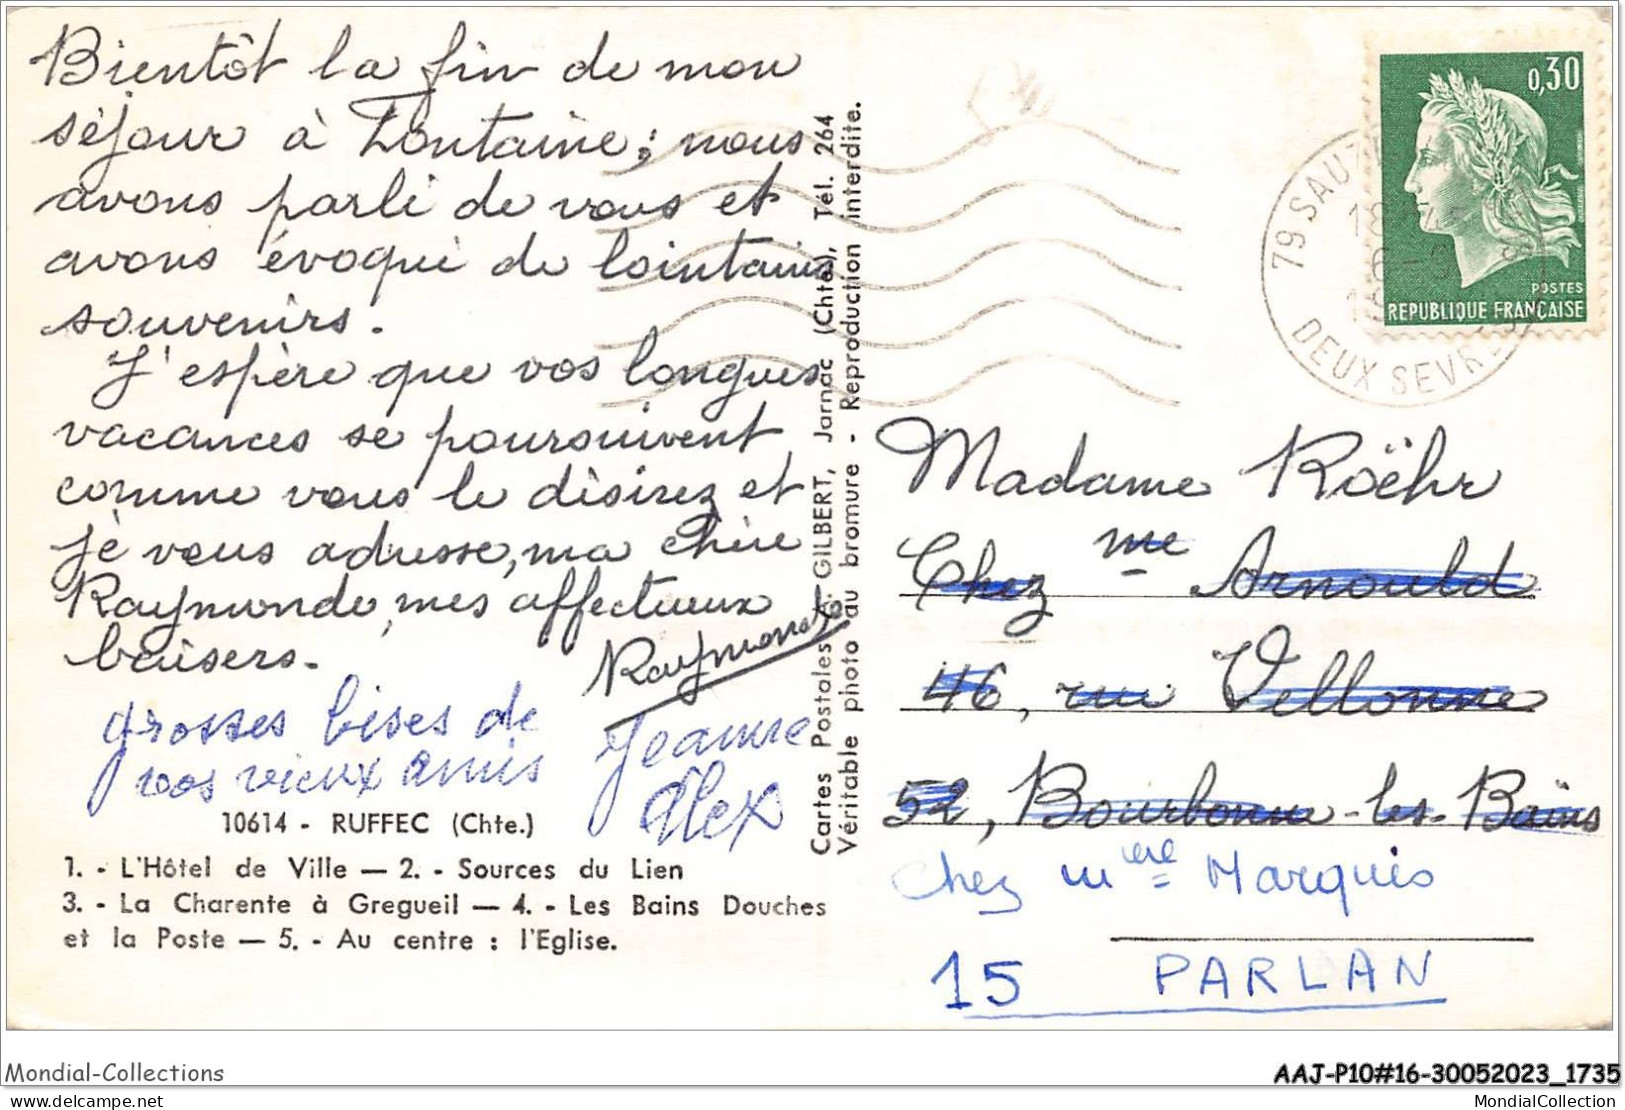 Bientôt la fin de mon
séjour à Fontaine ; nous
avons parlé de vous et
avons évoqué de lointains
souvenirs.
J'espère que vos longues
vacances se poursuivent
comme vous le désirez et
je vous adresse, ma chère
Raymonde, mes affectueux
baisers.
Raymonde
grosses bises de
vos vieux amis
Jeanne
Alex
10614 - RUFFEC (Chte.)
1. - L'Hôtel de Ville — 2. - Sources du Lien
3. - La Charente à Gregueil — 4. - Les Bains Douches
et la Poste — 5. - Au centre : l'Eglise.
Cartes Postales GILBERT, Jarnac (Chte), Tél. 264
Véritable photo au bromure - Reproduction interdite.
0,30
POSTES
REPUBLIQUE FRANÇAISE
79 SAUZ
18
DEUX SEVR
Madame Roëhr
Chez me Arnould
46, rue Vellonne
52, Bourbonne-les-Bains
chez Mère Marquis
15 PARLAN
Mondial-Collections
AAJ-P10#16-30052023_1735
delcampe.net
MondialCollection